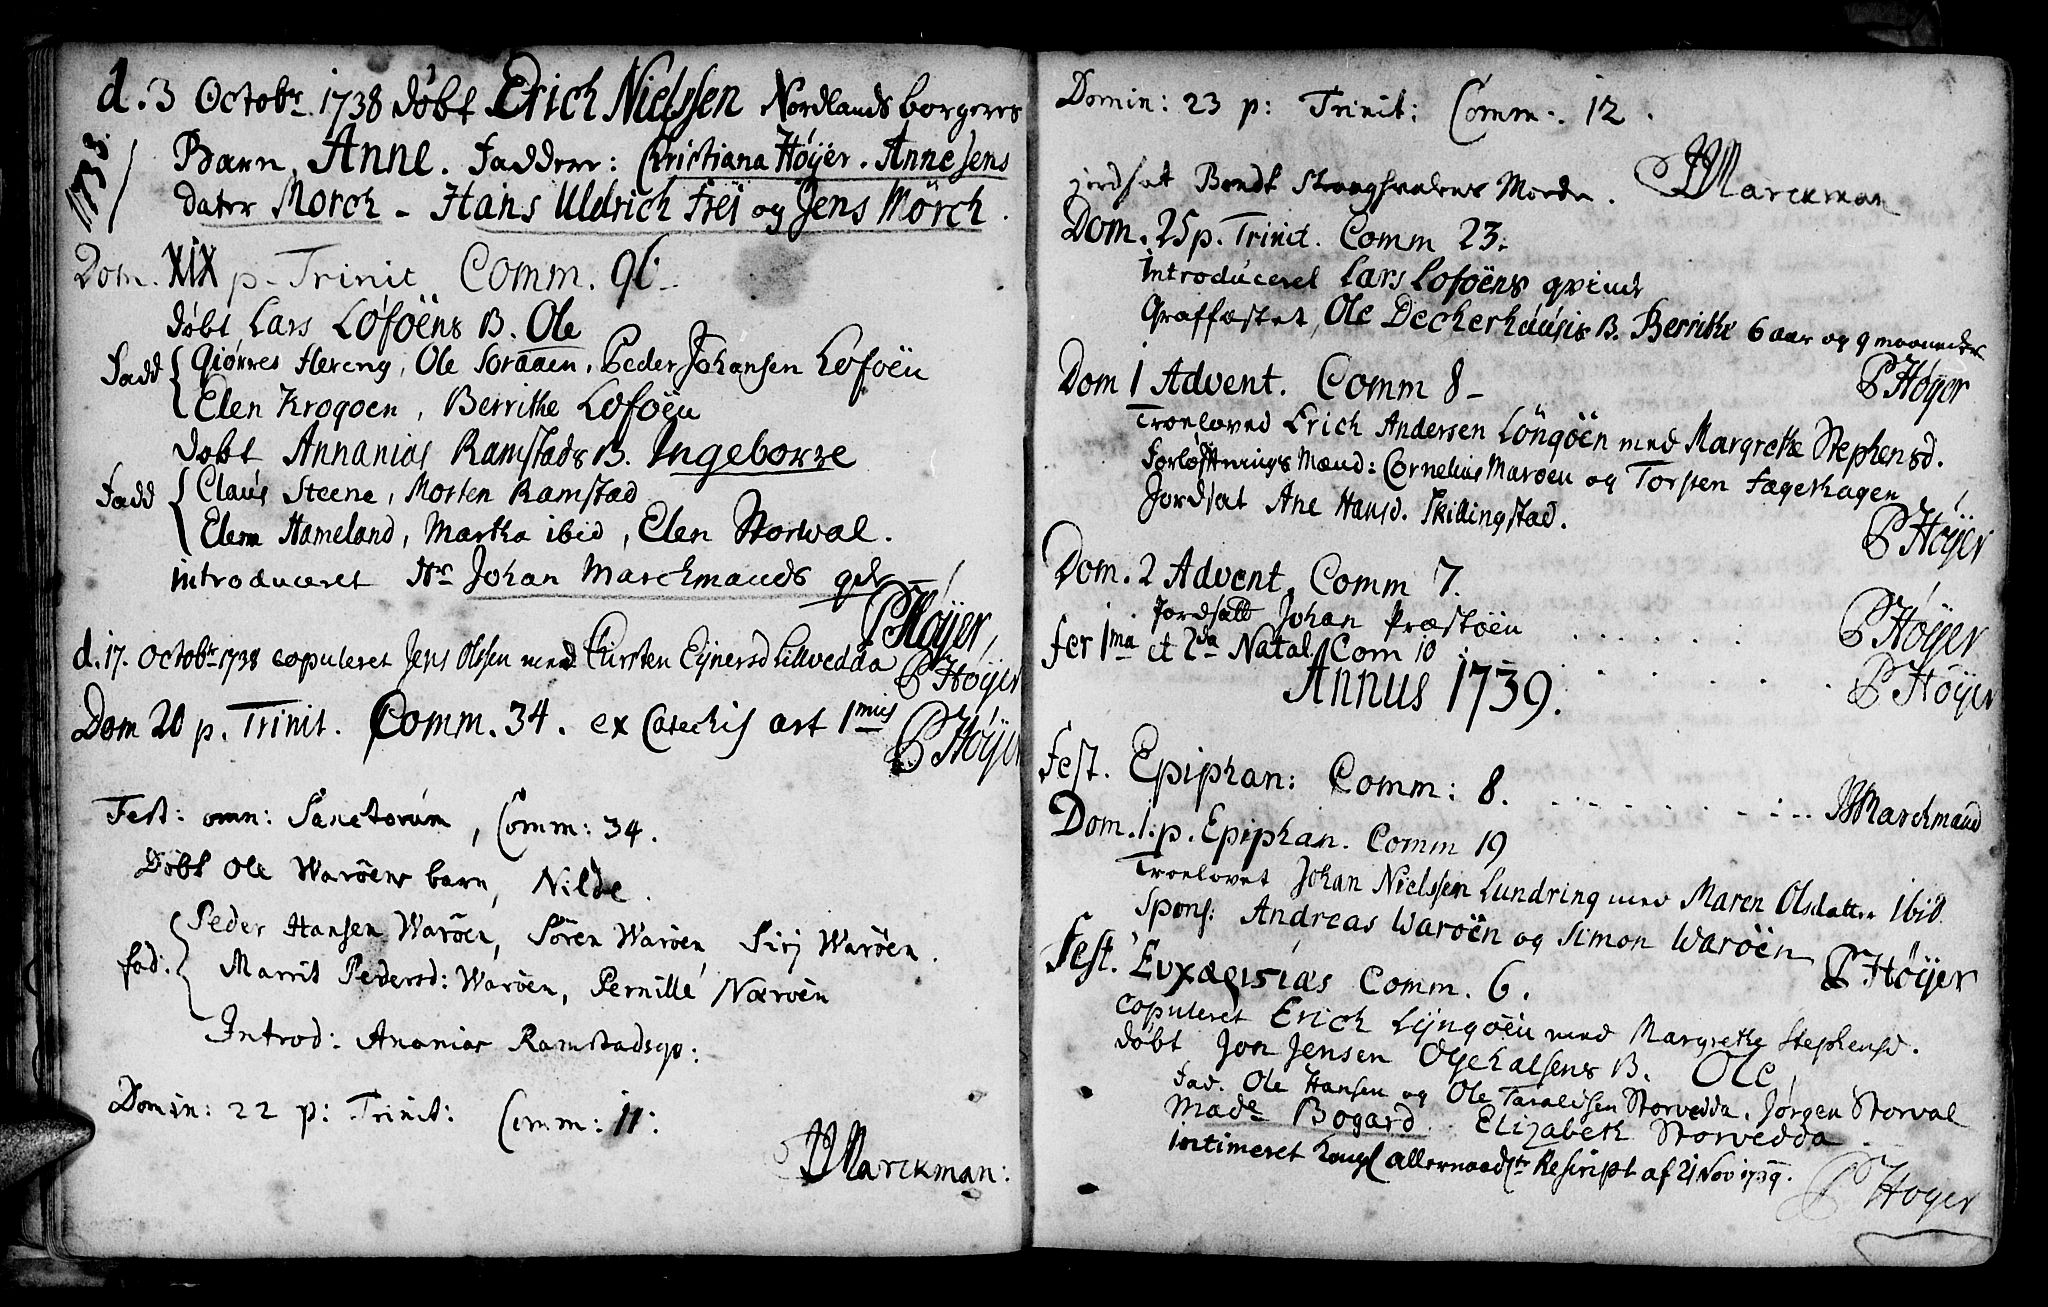 d. 3 Octobr. 1738 døbt Erich Nielssen Nordlands borgeres
1738
Barn, Anne. Faddere: Christiana Høÿer. Anne Jens
dater Morch - Hans Uldrich Frei og Jens Mörch.
Dom. XIX p. Trinit Comm. 96.
døbt Lars Lofoëns B. Ole
Fadd Giørres Hereng, Ole Soraaen, Peder Johansen Lofoëu
Elen Krogoen, Berrithe Lofoëu
døbt Annanias Ramstads B. Ingeborre
Fadd Claus Steene, Morten Ramstad
Elen Hameland, Martha ibid, Elen Storval.
introduceret Hr Johan Marckmands qv
PHöÿer
d. 17. Octobr 1738 copuleret Jens Olssen med Kirsten Eÿnersd Lillvedda PHöÿer
Dom 20 p. Trinit. Comm. 34. ex Catechis art 1mus PHöÿer
Fest: omn: Sanctorum, Comm: 34.
Døbt Ole Waröens barn, Nilde.
fad: Peder Hansen Waröen, Sören Waröen, Sirj Waröen.
Marrit Pedersd: Waröen, Pernille Næroën
Introd: Ananias Ramstads qv:
Domin: 22 p: Trinit: Comm: 11:
JMarckman:
Domin: 23 p: Trinit: Comm: 12.
jordsat Bendt Moder. JMarckman
Dom. 25 p. Trinit. Comm 23.
Introduceret Lars Lofoëns qvinde
Graffæstet, Ole Deckerhuusis B. Berrithe 6 aar og 9 maaneder
PHöÿer
Dom 1 Advent. Comm 8-
Troeloved Erich Andersen Löngöen med Margrethe Stephensd.
Forløftnings Mænd: Cornelius Maröen og Torsten Fagerhagen
Jordsat Ane Hansd. Skillingstad.
PHöÿer
Dom. 2 Advent. Comm 7.
Jordsatt Johan Præstöen PHöÿer
Fer 1ma et 2da Natal. Com 10 PHöÿer
Annus 1739.
Fest. Epiphan: Comm: 8. JMarckmand
Dom. 1. p. Epiphan. Comm 19
Troelovet Johan Nielssen Lundring med Maren Olsdatter ibid.
Spons: Andreas Waröen og Simon Waröen PHöÿer
Fest. Ευχαριςίας Comm. 6.
Copuleret Erich Lÿngöen med Margrethe Stephensd.
døbt Jon Jensen B. Ole
Fad. Ole Hansen og Ole Taraldsen Storvedda. Jørgen Storval
Made Bogard. Elizabeth Storvedda
intimeret Kongl allernaadste Rescript af 21 Nov 1739.
PHöyer